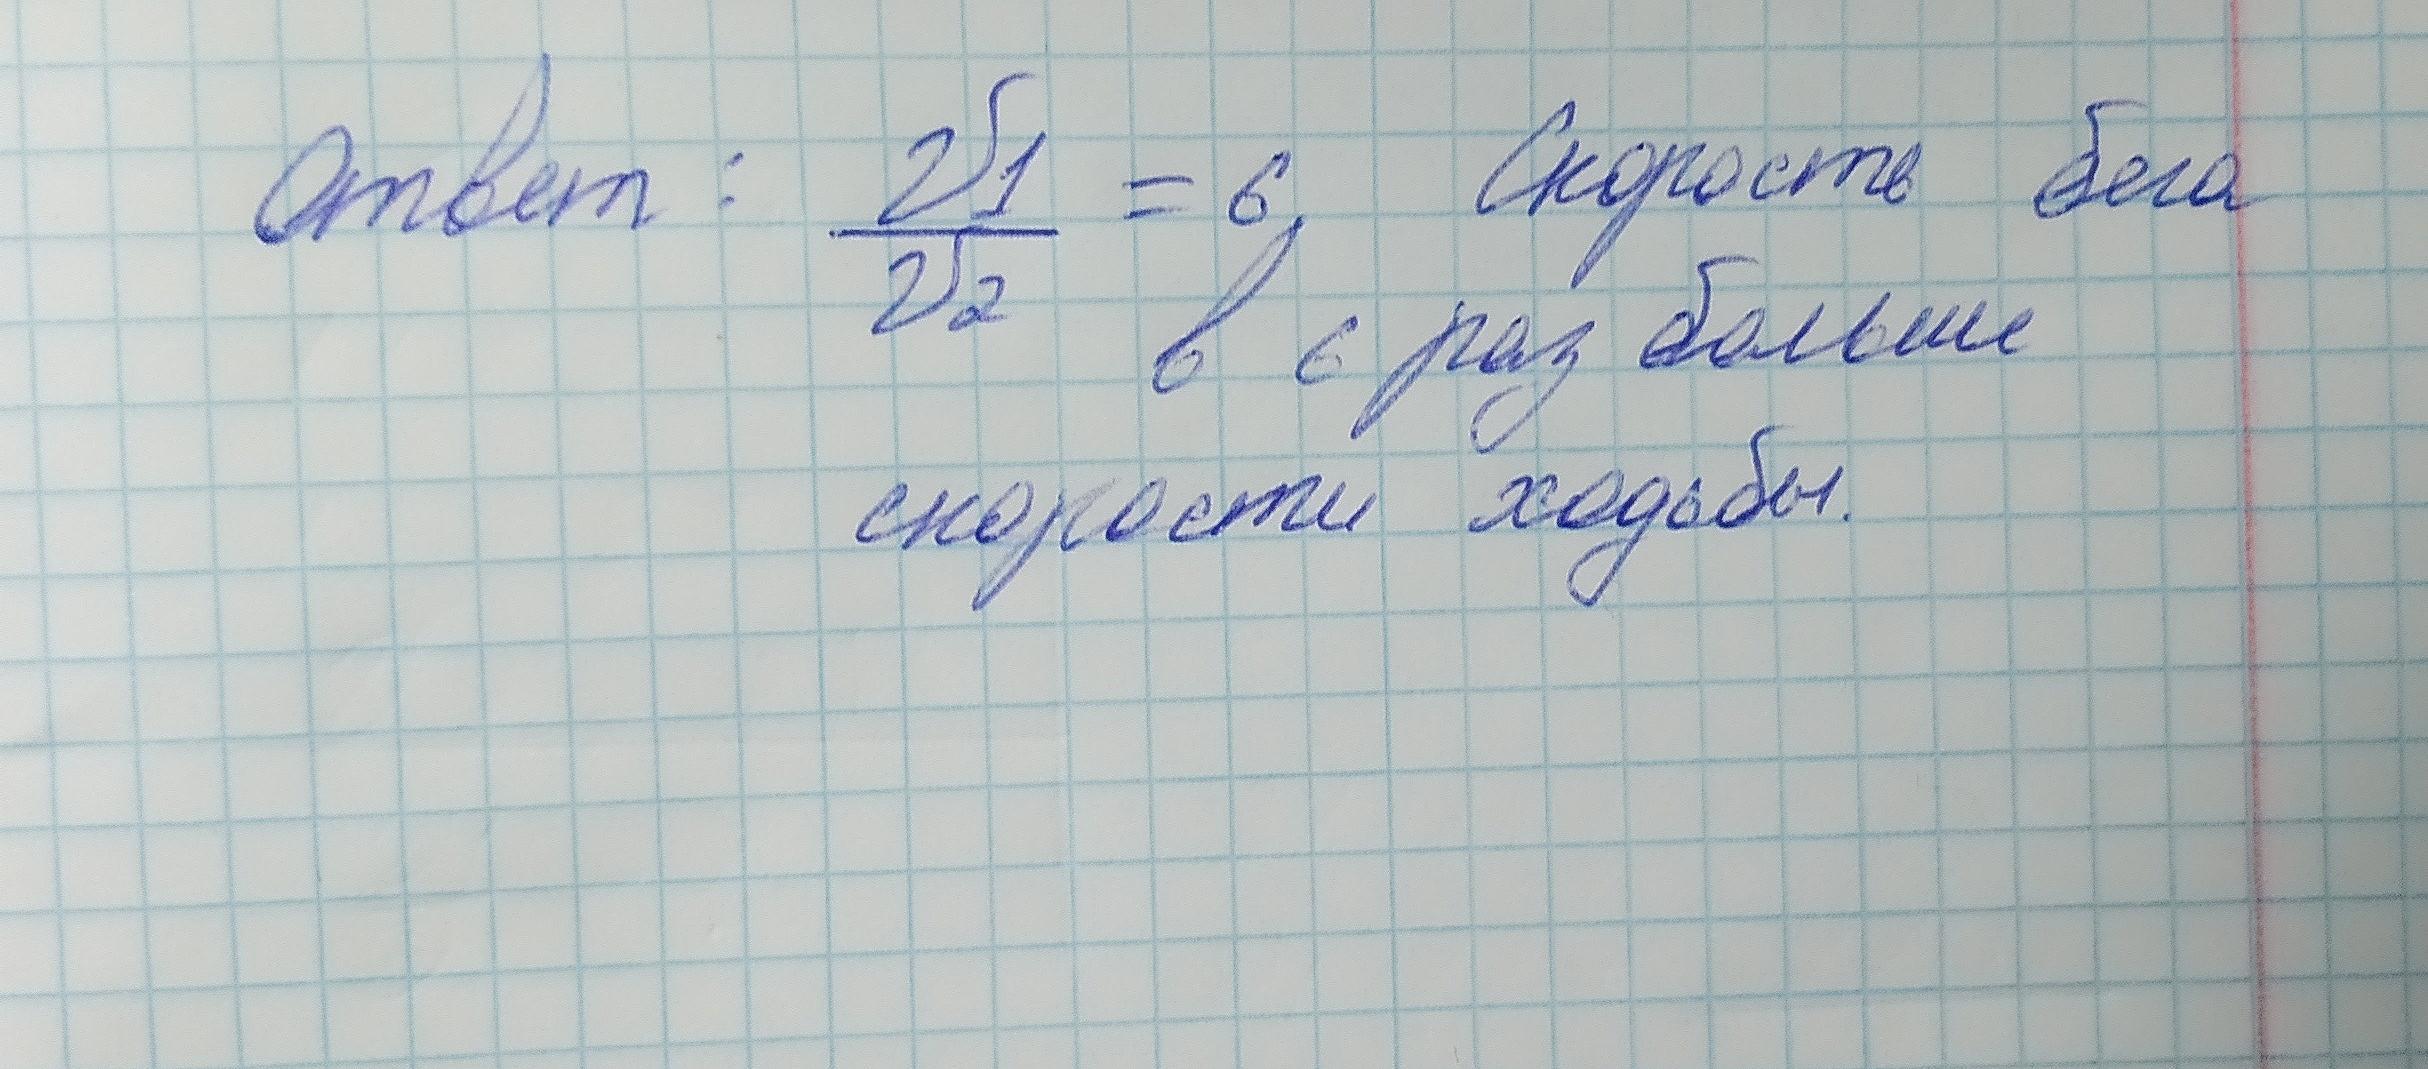 Ответ: v1/v2 = 6, Скорость бега
в 6 раз больше
скорости ходьбы.